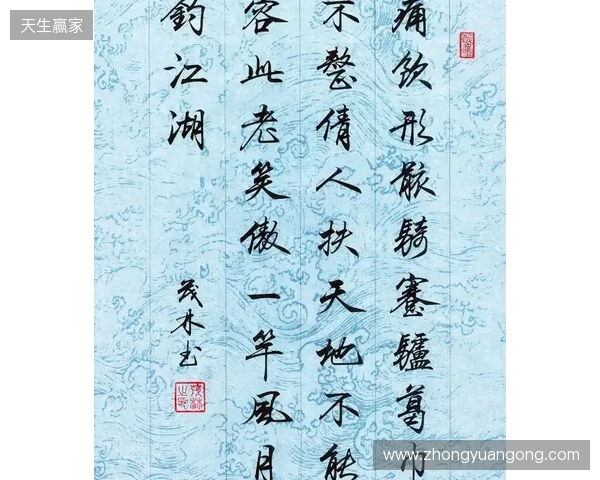 天生赢家
痛飲形骸騎蹇驢葛巾
不整倩人扶天地不能
容此老笑傲一竿風月
釣江湖
茂林书
www.zhongyuangong.com